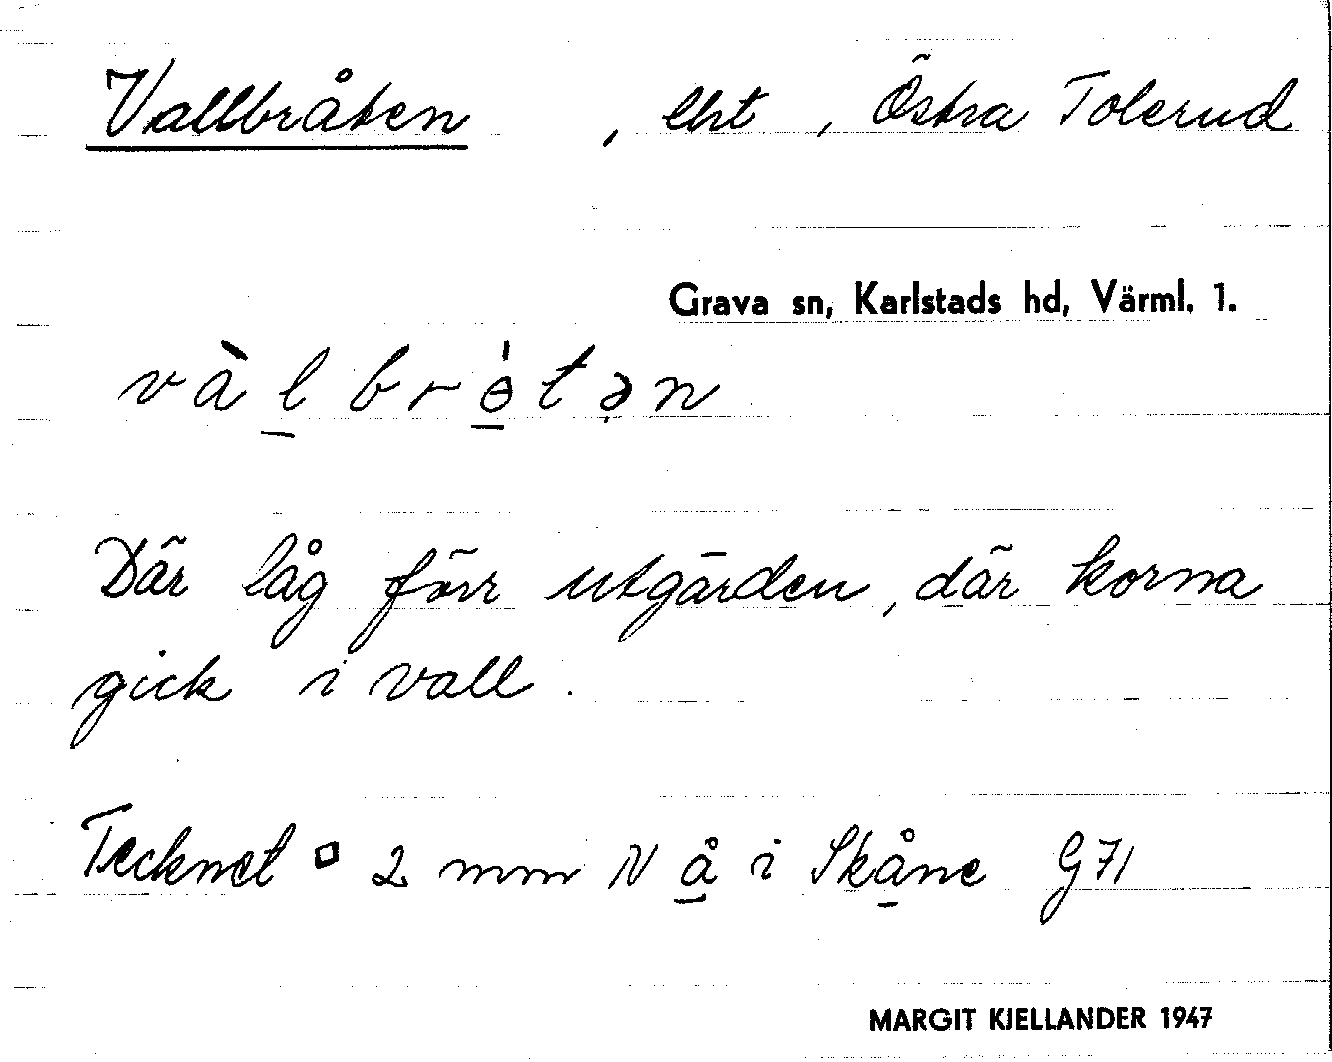 Vallbråten, lht, Östra Tolerud
Grava sn, Karlstads hd, Värml. 1.
vàl̲brɵ̲́tən
Där låg förr utgärden, där korna
gick i vall.
Tecknet □ 2 mm N å̲ i Skå̲ne G71
MARGIT KJELLANDER 1947